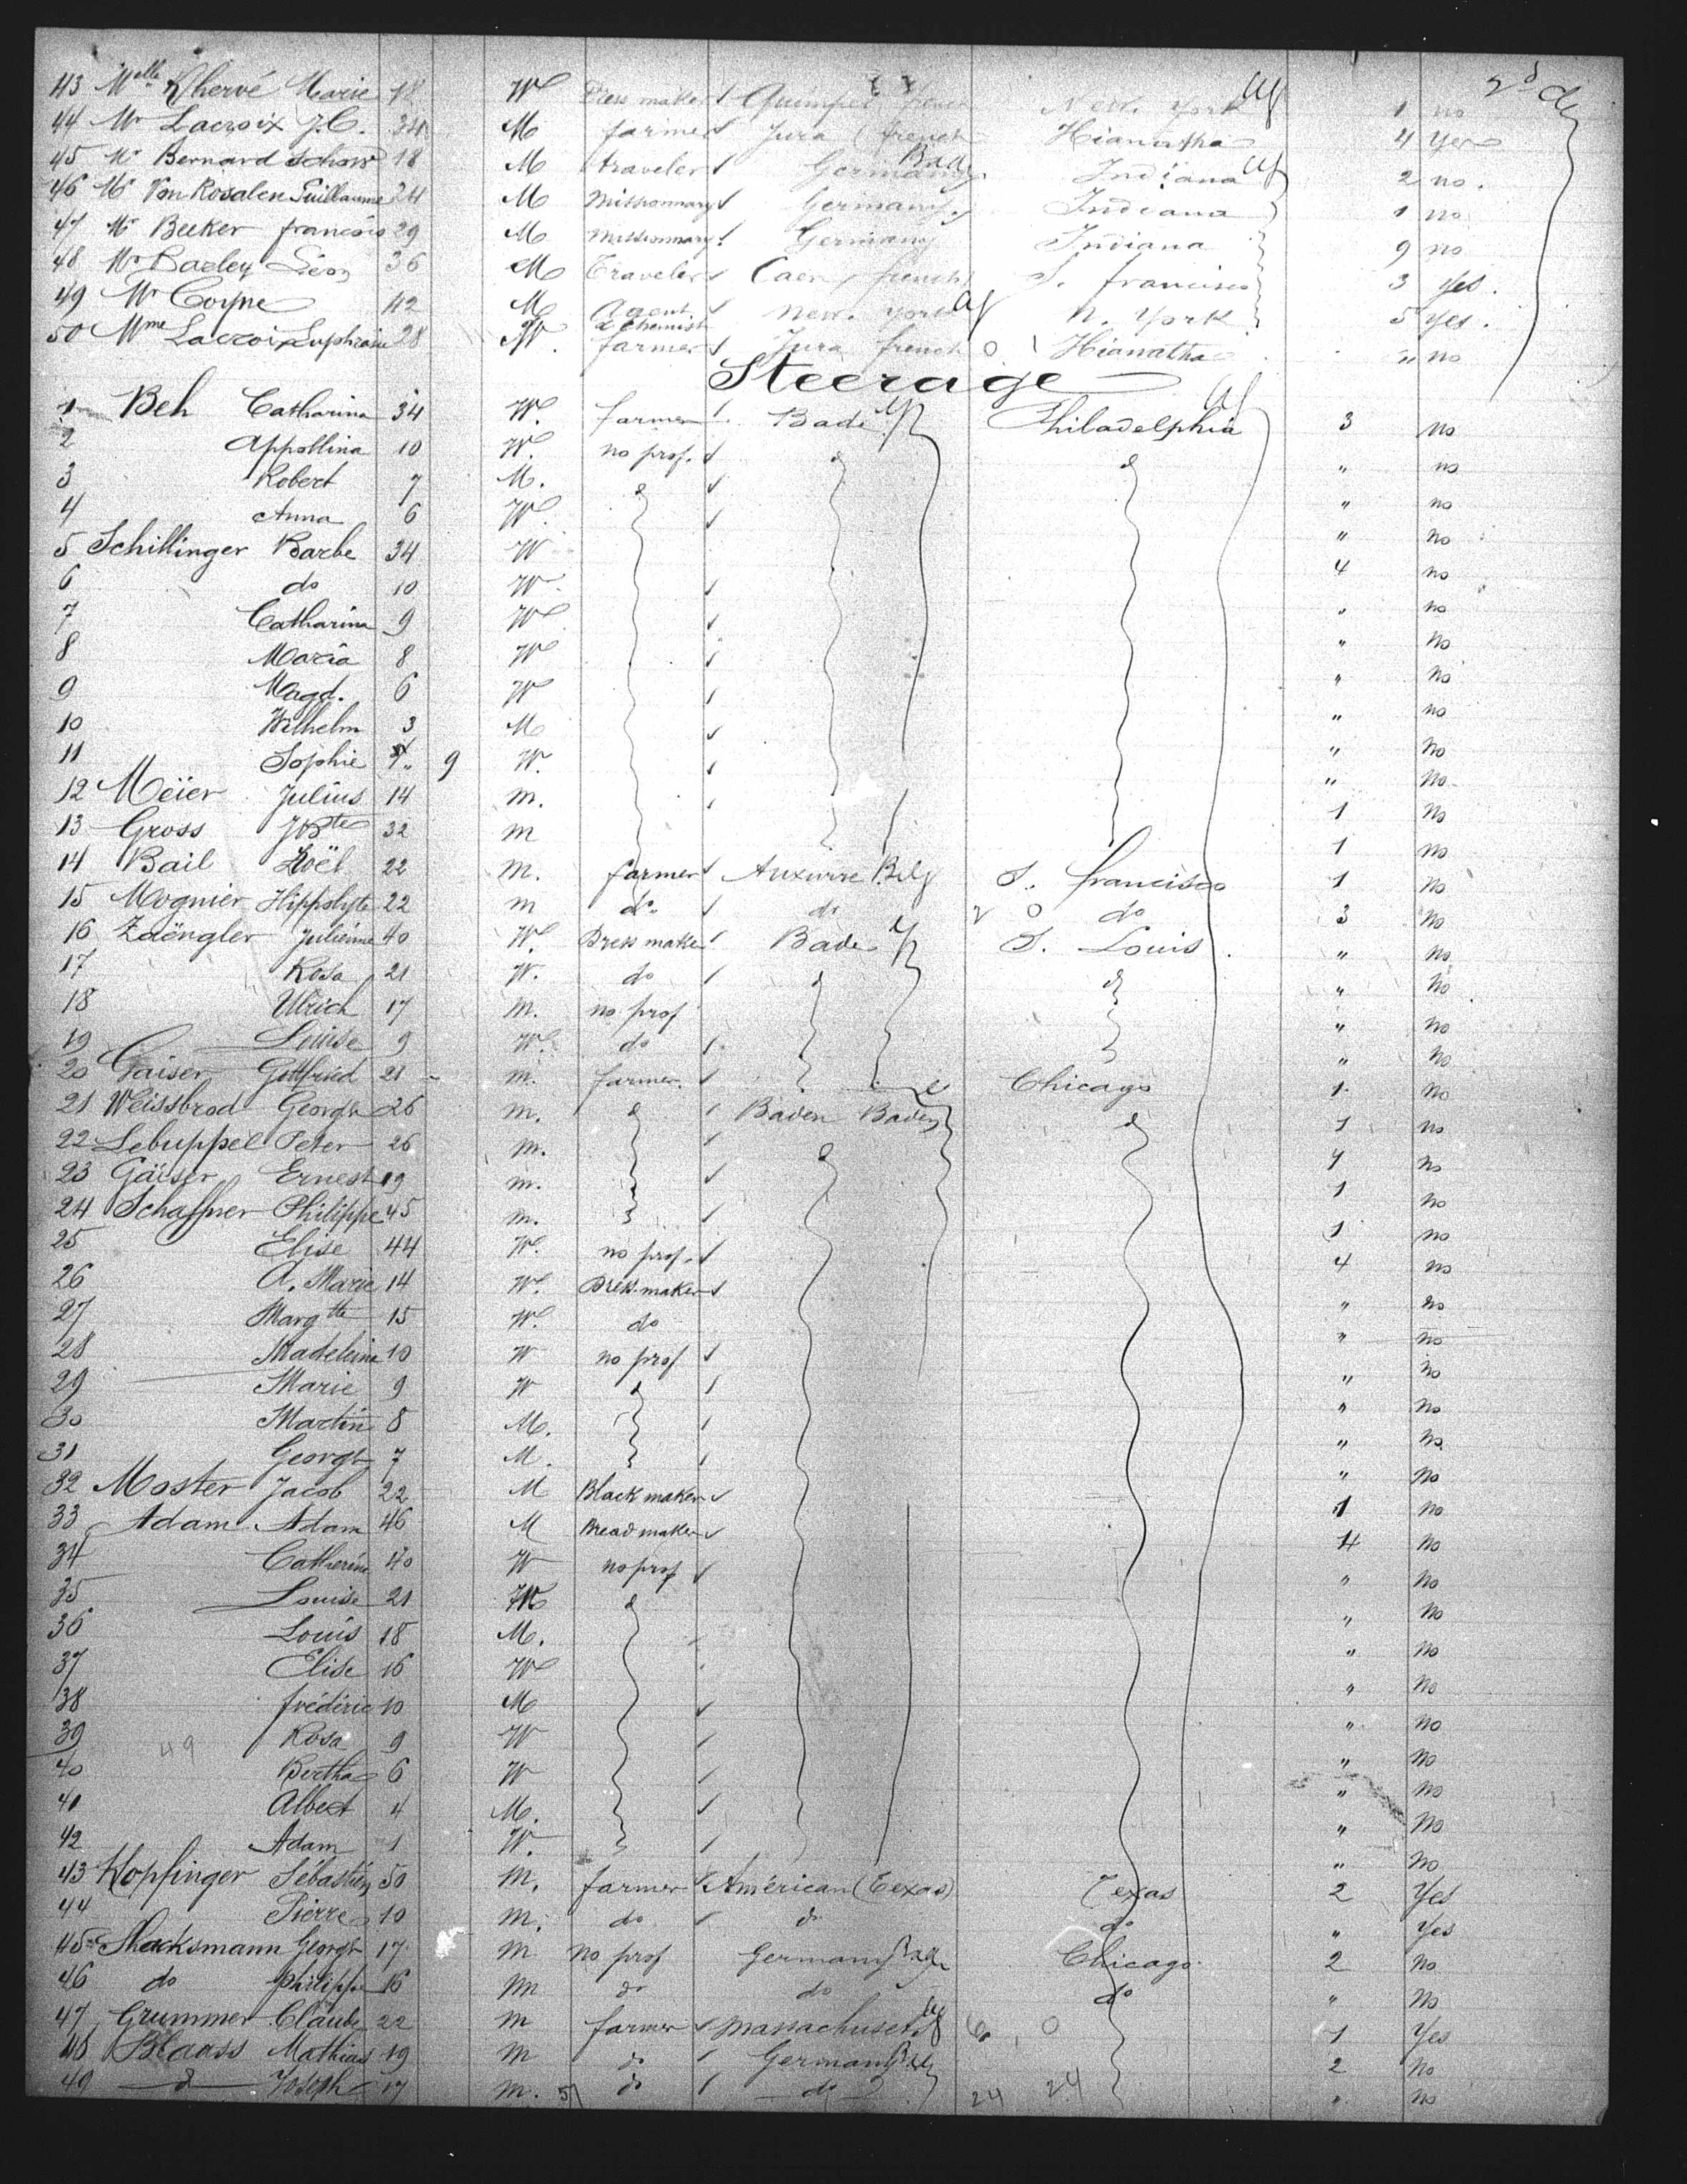 2d Cl
43 Melle Khervé Marie 18 W Dress maker Quimper french New. york 1 no
44 Mr Lacroix J.C. 34 M farmer Jura (french Hianatha 4 Yes
45 Mr Bernard 18 M traveler Germany Bade Indiana 2 no.
46 Mr Von Rosalen Guillaume 24 M Missionnary Germany. Indiana 1 no
47 Mr Becker françois 29 M Missionnary. Germany Indiana 9 no
48 Mr Bazley Léon 36 M Traveler Caen french S. francisco 3 yes.
49 Mr Coyne 42 M Agent. New. york N. York 5 yes.
50 Mme Lacroix Euphrasie 28 W. farmer Jura french Hianatha " no
Steerage
1 Beh Catharina 34 W. farmer Bade Philadelphia 3 no
2 Appollina 10 W. no prof. " no
3 Robert 7 M. " no
4 Anna 6 W. " no
5 Schillinger Barbe 34 W 4 no
6 do 10 W. " no
7 Catharina 9 W " no
8 Maria 8 W " no
9 Magd. 6 W " no
10 Wilhelm 3 M " no
11 Sophie 9 W. " no
12 Meïer Julius 14 m. 1 no
13 Gross JBte 32 m 1 no
14 Bail Noël 22 m. farmer Auxerre S. francisco 1 no
15 Mognier Hippolyte 22 m do do do 3 no
16 Zaëngler Julienne 40 W. Dress maker Bade S. Louis " no
17 Rosa 21 W. do " no
18 Ulrich 17 m. no prof " no
19 Louise 9 W. do " no
20 Gaiser Gottfried 21 m. farmer. Chicago 1 no
21 Weissbrod Georgh 26 m. Baden Baden 1 no
22 Lebuppel Peter 26 m. 1 no
23 Gaïser Ernest 19 m. 1 no
24 Schaffner Philippe 45 m. 1 no
25 Elise 44 W. no prof. 4 no
26 A. Marie 14 W. Dress maker " no
27 Margtte 15 W. do " no
28 Madeleine 10 W no prof " no
29 Marie 9 W " no
30 Martin 8 M. " no
31 Georgh 7 M. " no
32 Moster Jacob 22 M Black maker 1 no
33 Adam Adam 46 M Bread maker 4 no
34 Catherine 40 W no prof " no
35 Louise 21 W " no
36 Louis 18 M. " no
37 Elise 16 W " no
38 frédéric 10 M " no
39 Rosa 9 W " no
49
40 Bertha 6 W " no
41 Albert 4 M. " no
42 Adam 1 W. " no
43 Hopfinger Sébastien 50 m. farmer Américan (Texas) Texas 2 Yes
44 Pierre 10 m. do do do " Yes
45 Shacksmann Georgh 17 m no prof Germany Chicago 2 no
46 do philippe 16 m do do do " no
47 Grummer Claude 22 m farmer Massachusets 1 Yes
48 Blaass Mathias 19 m do Germany 2 no
49 d Joseph 17 m. do do 24 24 " no